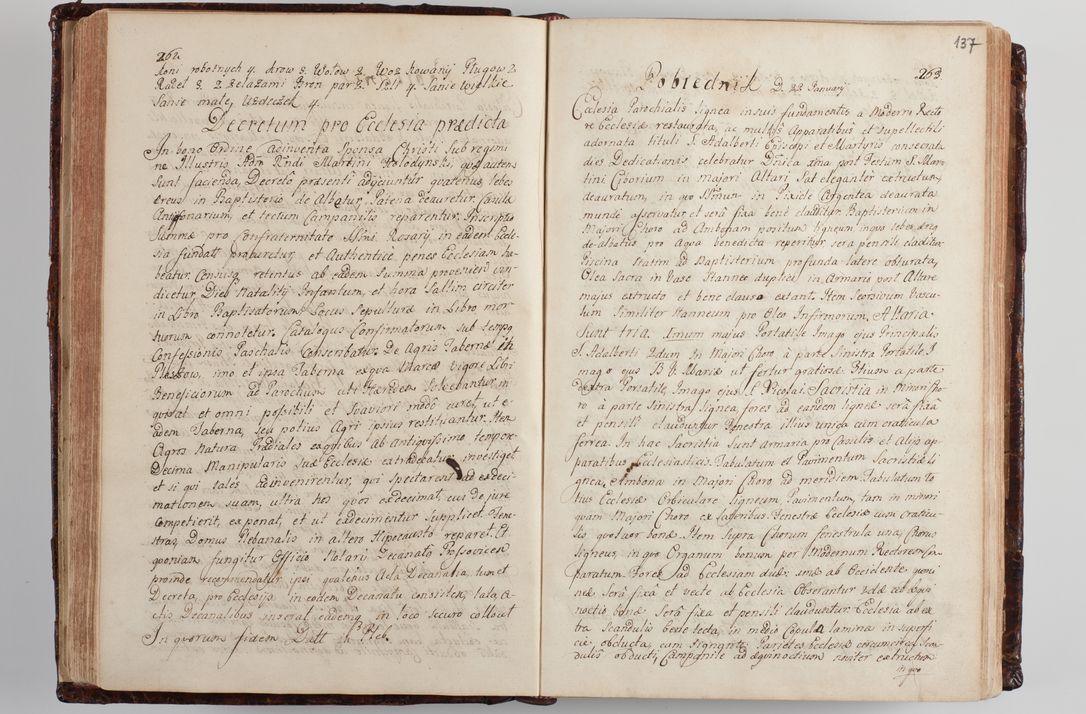 262.
Koni robotnych 4. Krow 3. Wołow 2. Woz Kowany Pługow 2.
Radeł 3. z żelazami Bron par 2. 4. Sanie wielkie
Sanie małe, Uzdeczek 4.
Decretum pro Ecclesia prædicta
In bono Ordine adinventa Sponsa Christi sub regimi
ne Illustris Adm Rndi Martini Wolodynski, quæ autem
Sunt facienda, Decreto præsenti adjiciuntur quatenus, lebes
æreus in Baptisterio de Albatur, Patena Deauretur, Casula
Antifonarium, et tectum Campanilis reparentur, Inscriptio
Summæ pro Confraternitate SSmi Rosarij in eadem Eccle-
sia fundatt procuretur, et Authenticè penes Ecclesiam ha-
beatur, Censusq retentus ab eadem Summa proveniens vin-
dicetur, Dies Nataliti Infantum, et hora Saltim circiter
in Libro Baptisatorum Locus Sepulturæ in Libro mor
tuorum connotetur. Catalogus Confirmatorum sub tempq
Confessionis Paschalis Conscribatur. De Agris Tabernæ in
imo et ipsa Taberna ex qua Marcæ vigore Libri
Beneficiorum ad Parochum uti Hæredem Solvebantur, in
quirat et omni possibili et Svaviori modo curet, ut e-
adem Taberna, seu potius Agri ipsius restituantur. Item
Agros Natura Prædiales ex quibus ab antiquissimo tempore
Decima Manipularis Suæ Ecclesiæ extradebatur, investiget
et si qui tales adinvenirentur, qui spectarent ad exdeci-
mationem suam, ultra hos quos exdecimat, eos de jure
Competierit, exponat, et ut exdecimentur Supplicet. Fene-
stras Domus Plebanalis in altero Hipocausto reparet. Et
quoniam fungitur Officio Notarij Decanatus
proinde recommendatur ipsi quatenus Acta Decanalia, tum et
Decreta, pro Ecclesijs in eodem Decanatu consistens, tala, A-
ctis Decanalibus inserat, eademq in loco securo collocet
In quorum fidem Datt ut Spl.
137
263
Pobiednik D. 22 January
Ecclesia Parochialis lignea in suis fundamentis a Moderni Recto
re Ecclesiæ restaurata, ac multis Apparatibus et Supellectili
adornata tituli S. Adalberti Episcopi et Martyris consecrata
dies Dedicationis celebratur Dnica ima post Festum S. Mar-
tini Ciborium in majori Altari Sat eleganter extructum,
deauratum, in quo SSmum in Pixide Argentea deaurata
mundè asservatur, et serâ fixa bene clauditur. Baptisterium in
Majori Choro ad Ambonam positum ligneum in quo lebes æreq
de-albatus pro Aqua benedicta reperitur, sera pensili claditur
Piscina Statim ad Baptisterium profunda latere obturata,
Olea Sacra in Vase Stanneo duplici in Armario post Altare
majus extructo et bene clauso extant, Item Seorsivum Vascu-
lum Similiter Stanneum pro Oleo Infirmorum, Altaria
Sunt tria. Unum majus Portatile Imago ejus Principalis
S. Adalberti 2dum In Majori Choro à parte Sinistra Portatile, I
mago ejus B. V. Mariæ ut fertur gratiosæ. 3tium a parte
Dextra Portatile, Imago ejus S. Nicolai. Sacristia in Minori Cho-
ro à parte Sinistra lignea, fores ad eandem ligneæ serâ fixâ
et pensili clauduntur Fenestra illius unica cum craticula
ferrea. In hac Sacristia Sunt armaria pro Casulis et Alijs ap-
paratibus Ecclesiasticis. Tabulatum et Pavimentum Sacristiæ Li
gnea, Ambona in Majori Choro ad meridiem Tabulatum to
tius Ecclesiæ Orbiculare ligneum, Pavimentum, tam in minori
quam Majori Choro ex lateribus. Fenestræ Ecclesiæ cum Craticu-
lis quatuor bonæ. Item Supra Chorum fenestrula una, Chorus
ligneus, in quo Organum bonum per Modernum Rectorem Com
paratum. Fores ad Ecclesiam duæ: 1mæ ab Occidente gemi
næ Serâ fixa et vecte ab Ecclesia Obserantur 2dæ ab Aqui
noctio bonæ Serâ fixa et pensili clauduntur. Ecclesia ab ex
tra Scandulis bene tecta, in medio Copula lamina in superfi
cie obducta, cum Signgnto, Parietes Ecclesiæ circumcirca Scan-
dulis obducti, Campanile ad Æquinoctium noviter extructum
in quo